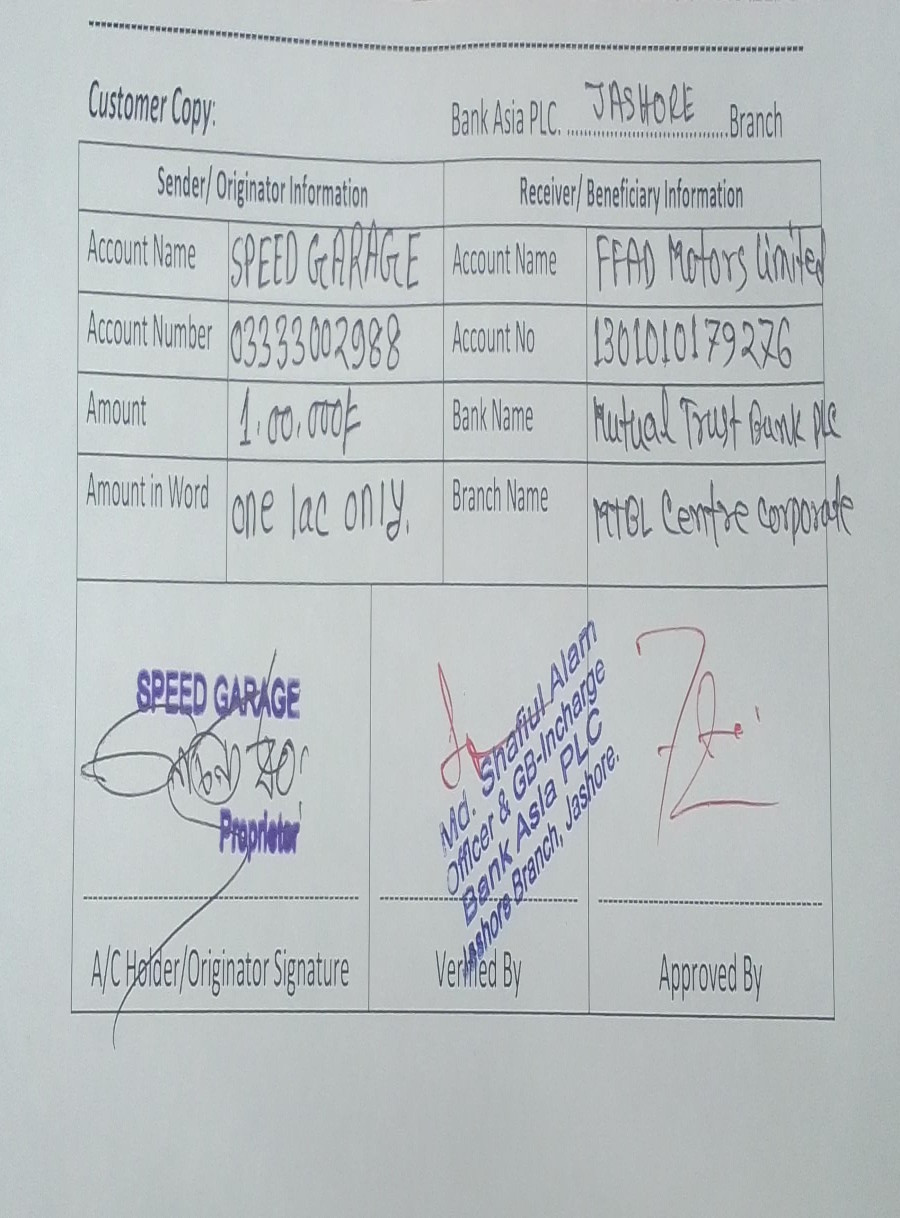 Customer Copy:
Bank Asia PLC. JASHORE Branch
Sender/ Originator Information Receiver/ Beneficiary Information
Account Name SPEED GARAGE Account Name FFAD Motors Limited
Account Number 03333002988 Account No 1301010179276
Amount 1,00,000/- Bank Name Mutual Trust Bank PLC
Amount in Word one lac only. Branch Name MTBL Centre Corporate
SPEED GARAGE
Proprietor
Md. Shafiul Alam
Officer & GB-Incharge
Bank Asia PLC
Jashore Branch, Jashore.
A/C Holder/Originator Signature Verified By Approved By